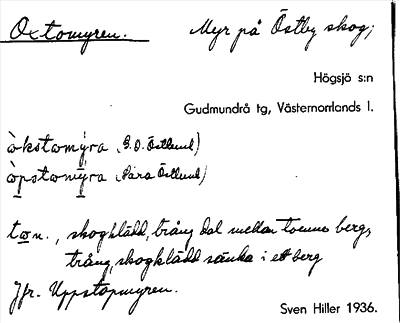 Oxtomyren. Myr på Östby skog;
Högsjö s:n
Gudmundrå tg, Västernorrlands l.
òkstωmýra (G.O. Östlund)
òpstωmȳra (Sara Östlund)
tωn., skogklädd, trång dal mellan tvenne berg,
trång, skogklädd sänka i ett berg
Jfr. Uppstopmyren.
Sven Hiller 1936.